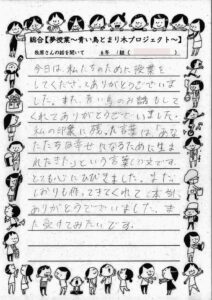 総合【夢授業〜青い鳥とまり木プロジェクト〜】
牧原さんの話を聞いて 6年 組( )
今日は、私たちのために授業を
してくださってありがとうございま
した。また、青い鳥のお話もして
くれてありがとうございました。
私の印象に残った言葉は「あな
たたちは幸せになるために生ま
れたきた」という言葉です。
とても心にひびきました。また、
しおりも作ってきてくれて本当に
ありがとうございました。ま
た受けてみたいです。